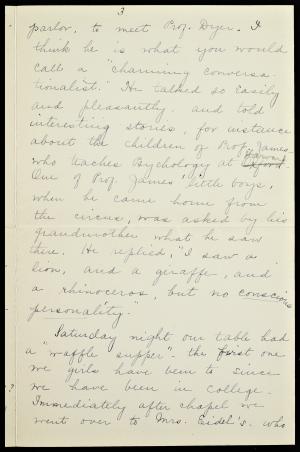 3
parlor, to meet Prof. Dyer. I
think he is what you would
call a "charming conversa-
tionalist." He talked so easily
and pleasantly and told
interesting stories, for instance
about the children of Prof. James
who teaches Psychology at Harvard
One of Prof. James' little boys,
when he came home from
the circus, was asked by his
grandmother what he saw
there. He replied, "I saw a
lion, and a giraffe, and
a rhinoceros, but no conscious
personality."
Saturday night our table had
a "waffle supper" - the first one
we girls have been to since
we have been in college.
Immediately after chapel we
went over to Mrs. Eidel's. who